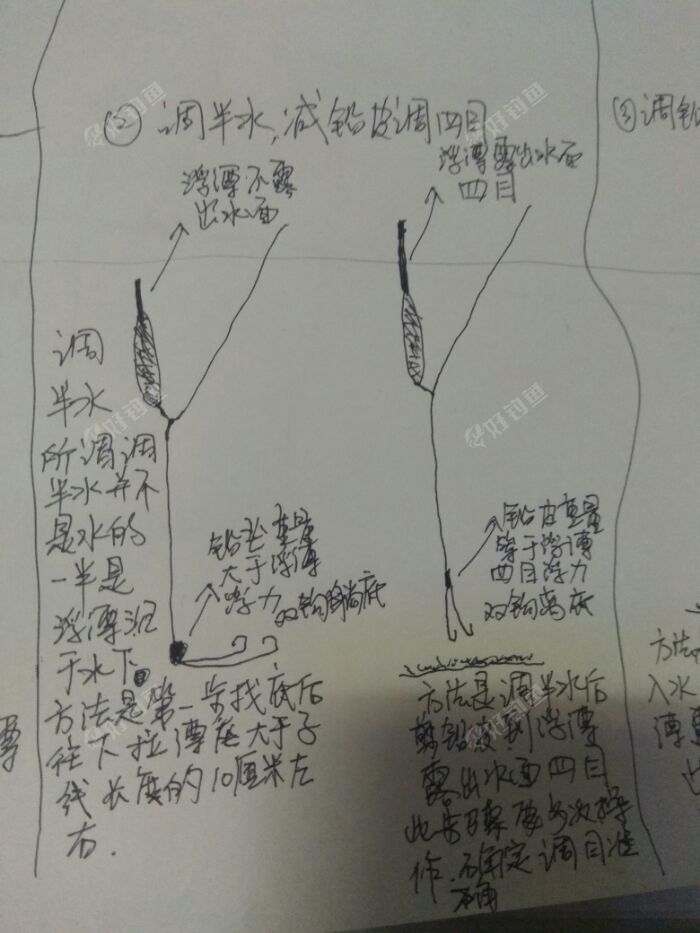 ② 调半水,减铅皮调四目
浮漂不露
出水面
浮漂露出水面
四目
③调铅
调
半水
所谓调
半水并不
是水的
一半是
浮漂沉
于水下。
方法是第一步找底后
往下拉漂座大于子
线长度的10厘米左
右.
铅皮重量
大于浮漂
浮力
双钩躺底
铅皮重量
等于浮漂
四目浮力
双钩离底
方法是调半水后
剪铅皮到浮漂
露出水面四目
此步骤要多次操
作,确定调目准
确
方法
入水
漂
出
好钓鱼
好钓鱼
好钓鱼
好钓鱼
好钓鱼
好钓鱼